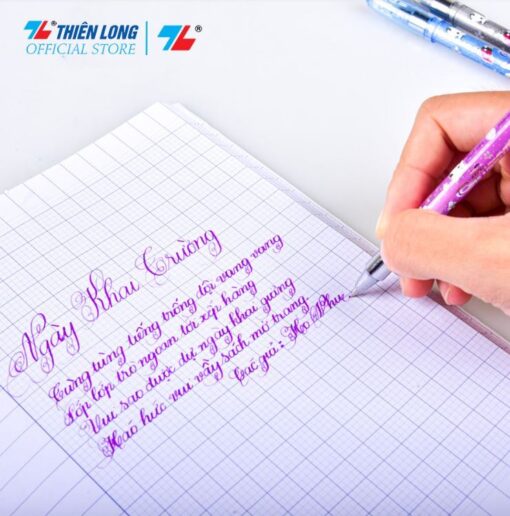 THIÊN LONG
OFFICIAL STORE
Ngày Khai Trường
Tưng từng tiếng trống dội vang vang
Lớp lớp trò ngoan tới xếp hàng
Vui sao được dự ngày khai giảng
Háo hức vui vầy sách mở trang
Tác giả: Hảo Phu